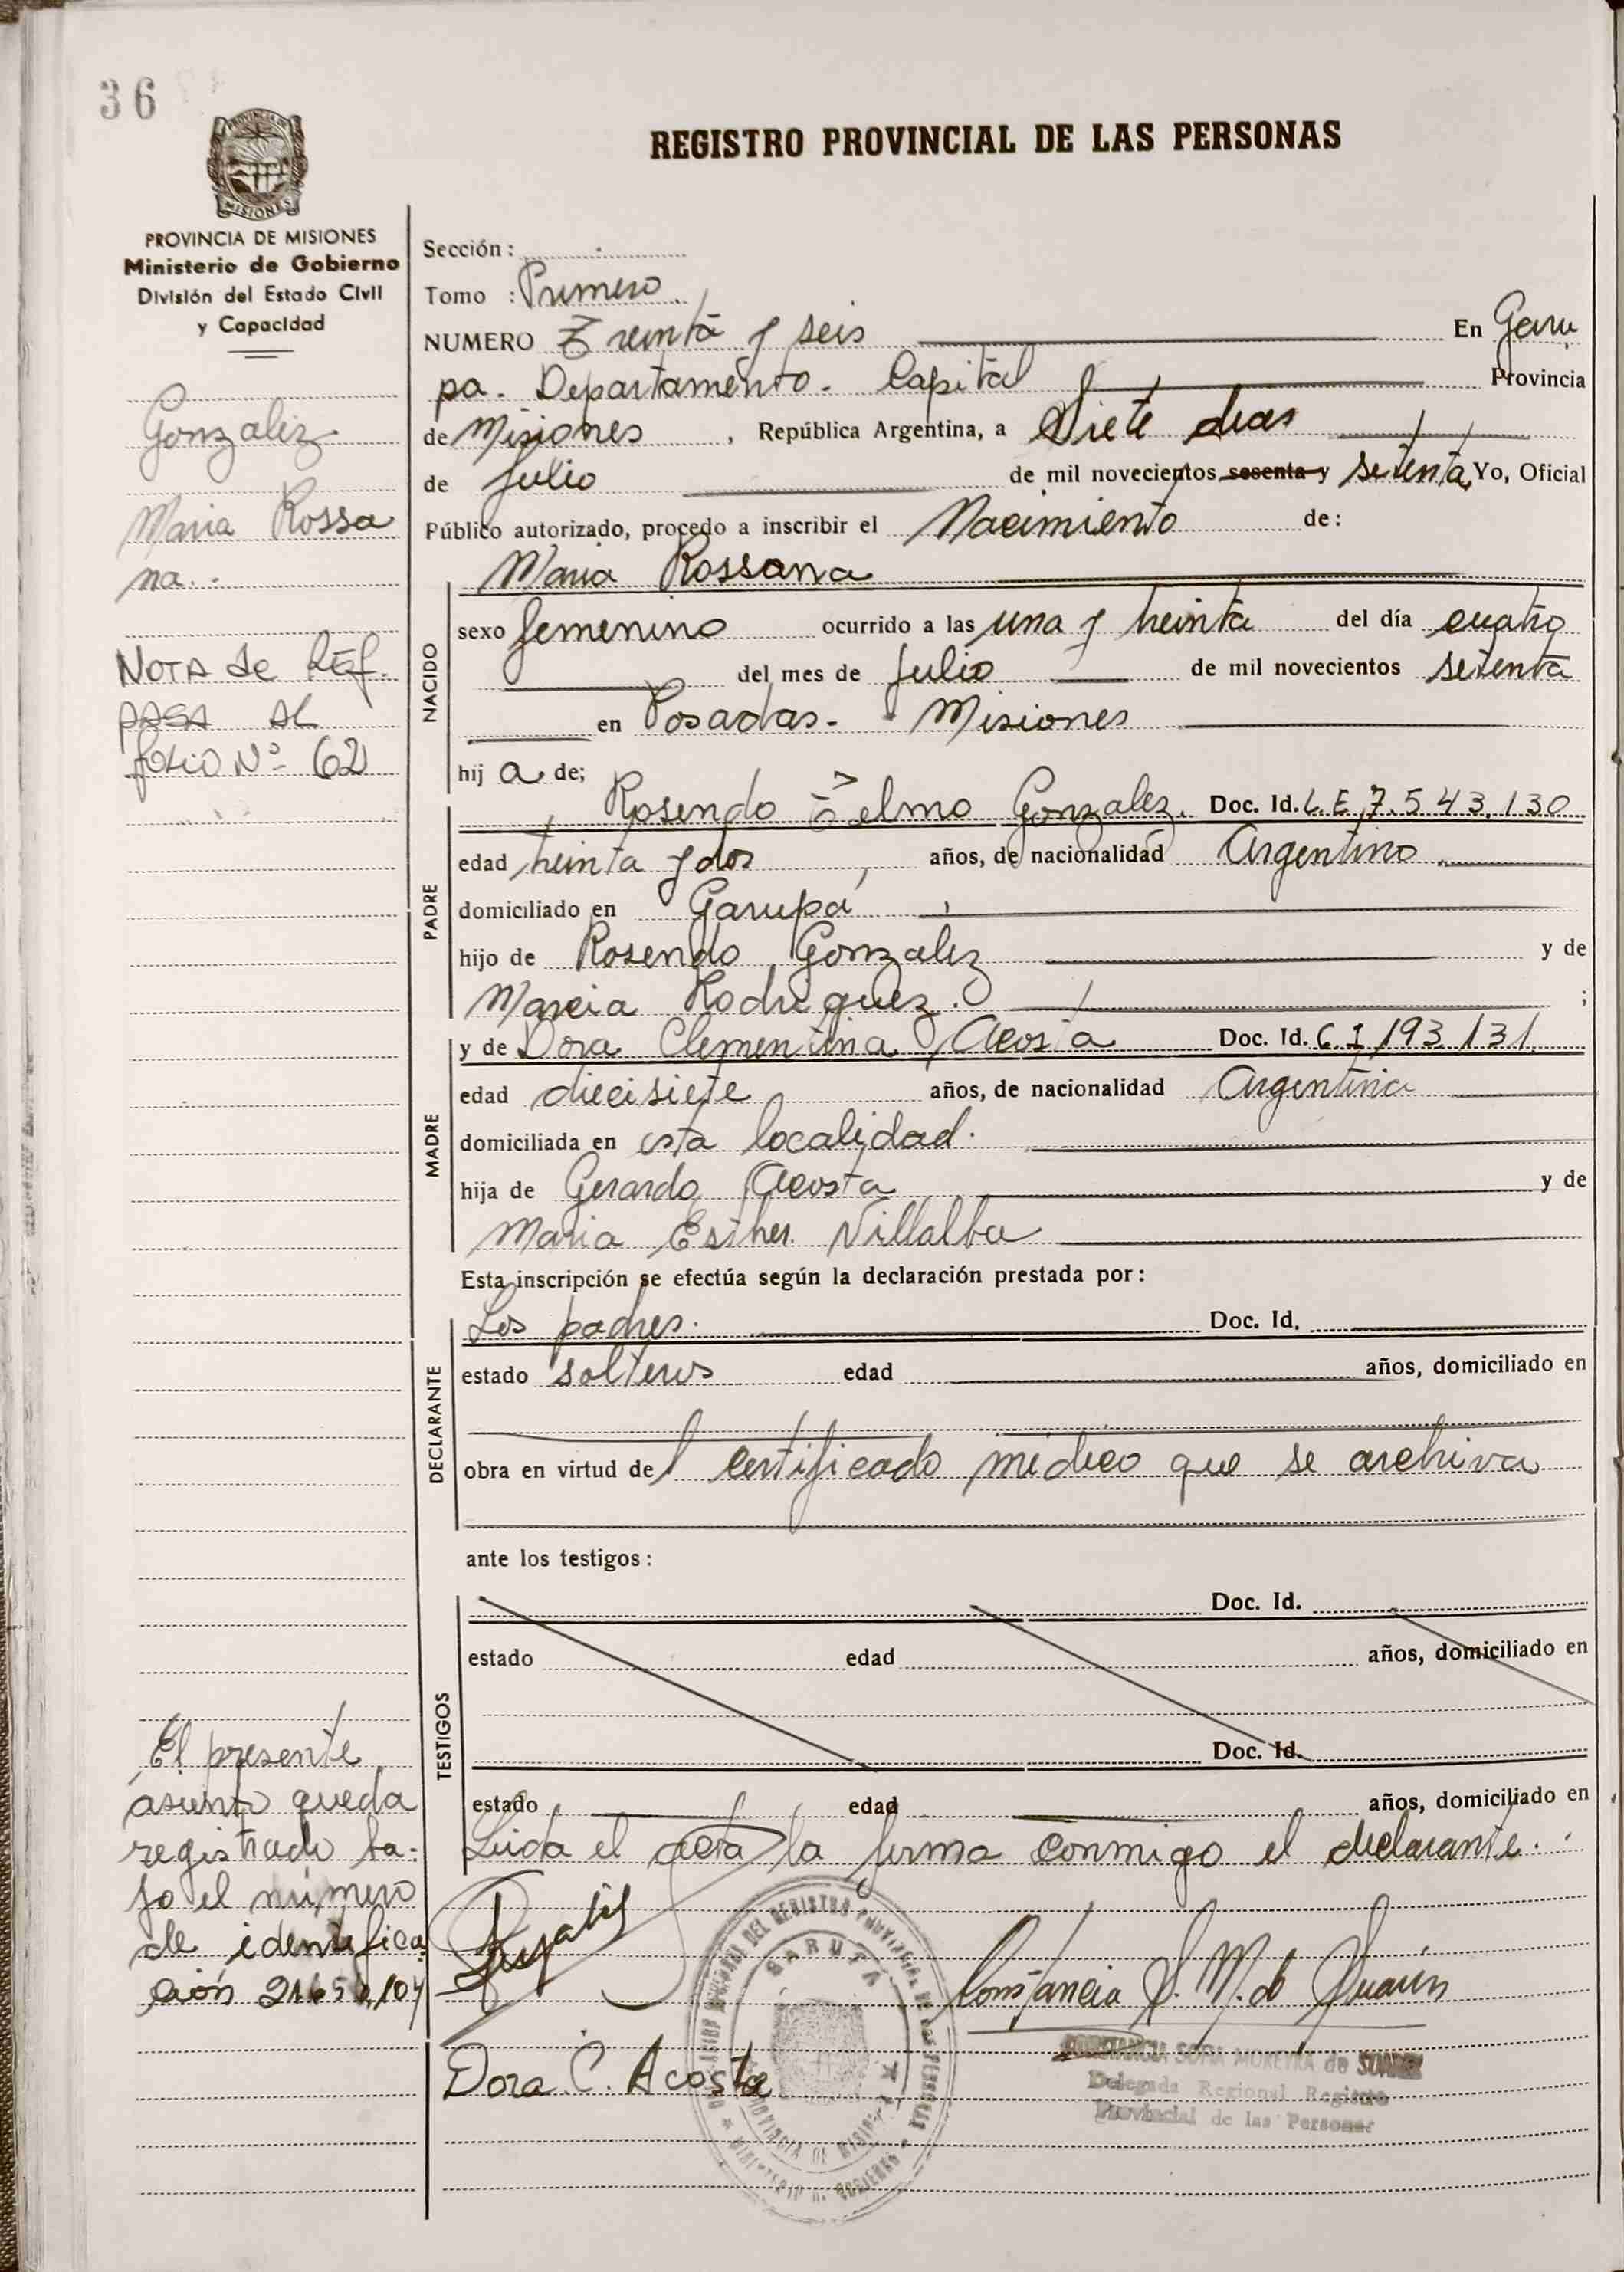 36
REGISTRO PROVINCIAL DE LAS PERSONAS
PROVINCIA DE MISIONES
Ministerio de Gobierno
División del Estado Civil
y Capacidad
Gonzalez
Maria Rossa
na.
NOTA de REF.
PASA AL
folio Nº 62
El presente
asunto queda
registrado ba-
jo el número
de identifica
ción
Sección :
Tomo : Primero
NUMERO Treinta y seis En Garu
pa. Departamento. Capital Provincia
de Misiones , República Argentina, a Siete dias
de Julio de mil novecientos sesenta y setenta, Yo, Oficial
Público autorizado, procedo a inscribir el Nacimiento de :
Maria Rossana
NACIDO
sexo femenino ocurrido a las una y treinta del día cuatro
del mes de Julio de mil novecientos setenta
en Posadas. - Misiones
hij a de;
PADRE
Rosendo Telmo Gonzalez. Doc. Id. L.E. 7.543.130
edad treinta y dos años, de nacionalidad Argentino
domiciliado en Garupá
hijo de Rosendo Gonzalez y de
Marcia Rodriguez. ;
MADRE
y de Dora Clementina Acosta Doc. Id. C.I 193.131
edad diecisiete años, de nacionalidad Argentina
domiciliada en esta localidad.
hija de Gerardo Acosta y de
Maria Esther Villalba
Esta inscripción se efectúa según la declaración prestada por :
DECLARANTE
Los padres. Doc. Id.
estado solteros edad años, domiciliado en
obra en virtud del certificado médico que se archiva
ante los testigos :
TESTIGOS
Doc. Id.
estado edad años, domiciliado en
Doc. Id.
estado edad años, domiciliado en
Leida el acta la firma conmigo el declarante.
Constancia S. M. de
Dora C. Acosta
CONSTANCIA SOFIA MOREYRA de SUAREZ
Delegada Regional Registro
Provincial de las Personas
GARUPA
PROVINCIA DE MISIONES